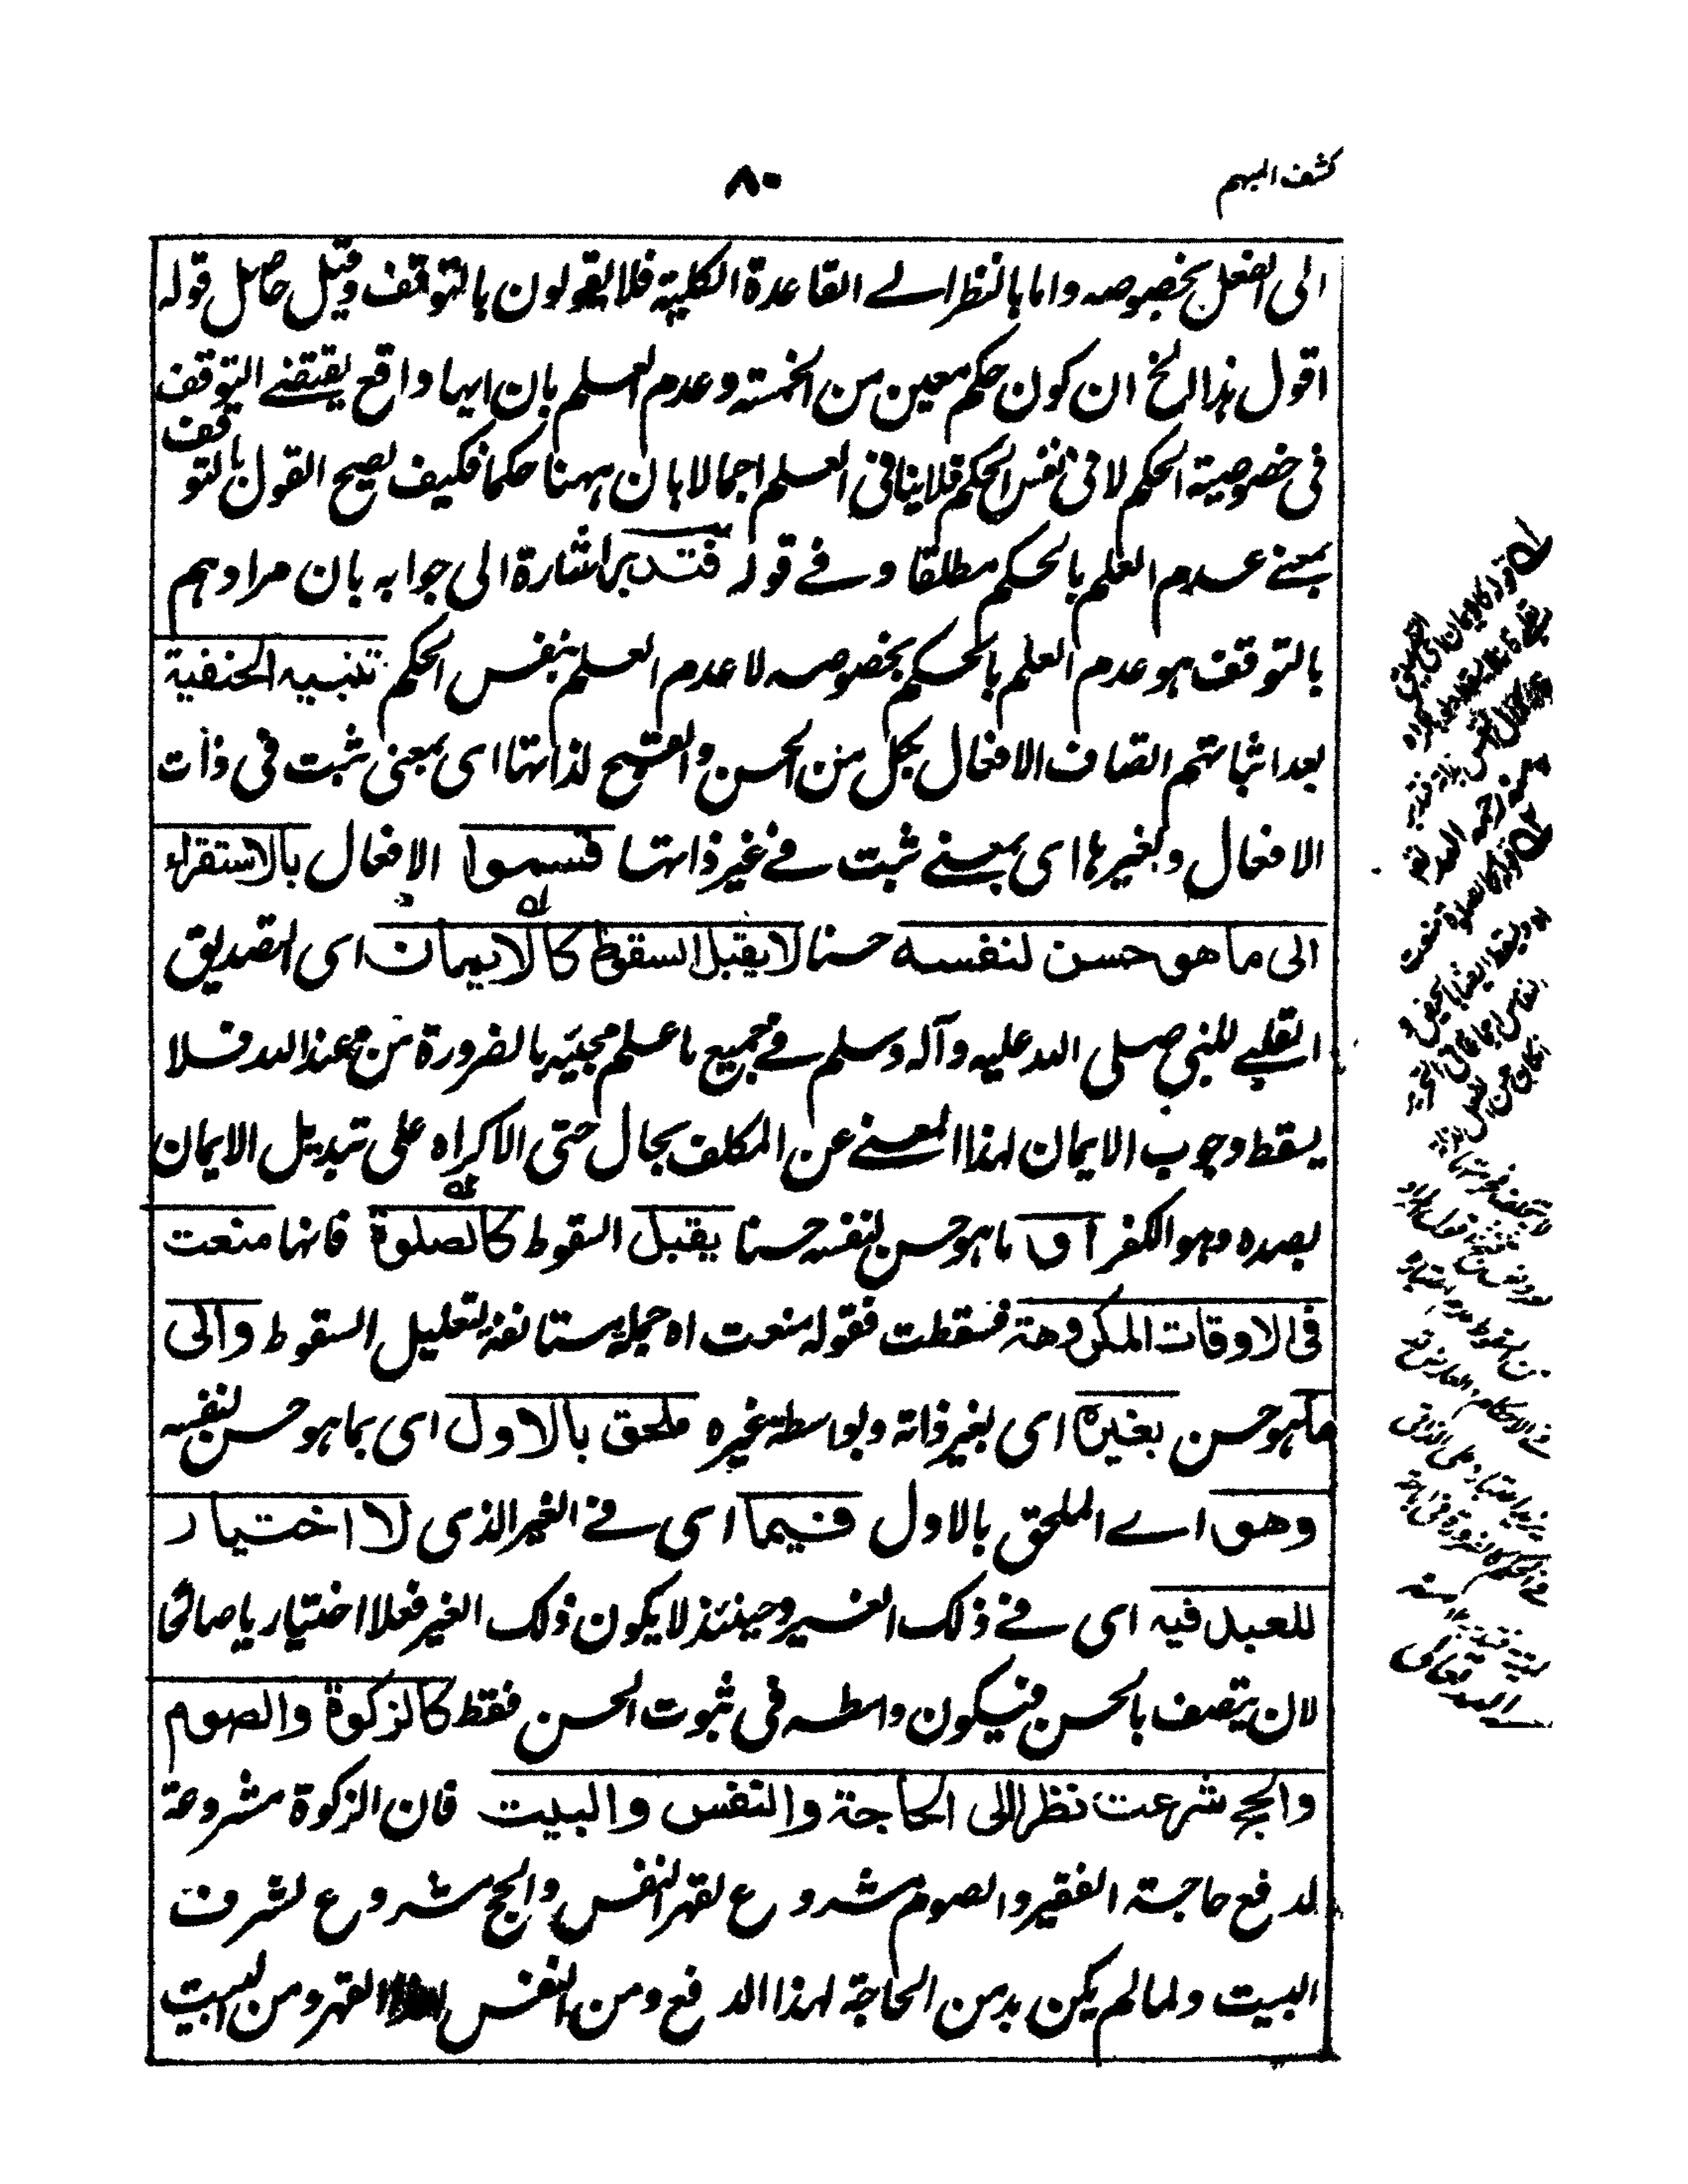 كشف المبهم
٨٠
الى الفعل بخصوصه واما بالنظر الے القاعدة الكلية فلا يقولون بالتوقف وقيل حاصل قوله
اقول هذا الخ ان كون حكم معين من الخمسة وعدم العلم بان ايها واقع يقتضے التوقف
فى خصوصية الحكم لا فى نفس الحكم فلا ينافى العلم اجمالا بان ههنا حكما فكيف يصح القول بالتوقف
بمعنے عدم العلم بالحكم مطلقا وفے قوله فتدبر اشارة الى جوابه بان مرادهم
بالتوقف هو عدم العلم بالحكم بخصوصه لا عدم العلم بنفس الحكم تنبيه الحنفية
بعد اثباتهم اتصاف الافعال بكل من الحسن والقبح لذاتها اى بمعنى ثبت فى ذات
الافعال ولغيرها اى بمعنے ثبت فے غير ذاتها قسموا الافعال بالاستقراء
الى ما هو حسن لنفسه حسنا لا يقبل السقوط كالايمان اى التصديق
القلبے للنبى صلى الله عليه وآله وسلم فے جميع ما علم مجيئه بالضرورة من عند الله فلا
يسقط وجوب الايمان لهذا المعنے عن المكلف بحال حتى الاكراه على تبديل الايمان
بضده وهو الكفر او ما هو حسن لنفسه حسنا يقبل السقوط كالصلوة فانها منعت
فى الاوقات المكروهة فسقطت فقوله منعت اه جملة مستانفة لتعليل السقوط والى
ما هو حسن بغيره اى بغير ذاته وبواسطة غيره ملحق بالاول اى بما هو حسن لنفسه
وهو اے الملحق بالاول فيما اى فے الغير الذى لا اختيار
للعبد فيه اى فے ذلك الغير وحينئذ لا يكون ذلك الغير فعلا اختياريا صالحا
لان يتصف بالحسن فيكون واسطه فى ثبوت الحسن فقط كالزكوة والصوم
والحج شرعت نظرا الى الحاجة والنفس والبيت فان الزكوة مشروعة
لدفع حاجة الفقير والصوم مشروع لقهر النفس والحج مشروع لشرف
البيت ولما لم يكن بد من الحاجة لهذا الدفع ومن النفس القهر ومن البيت